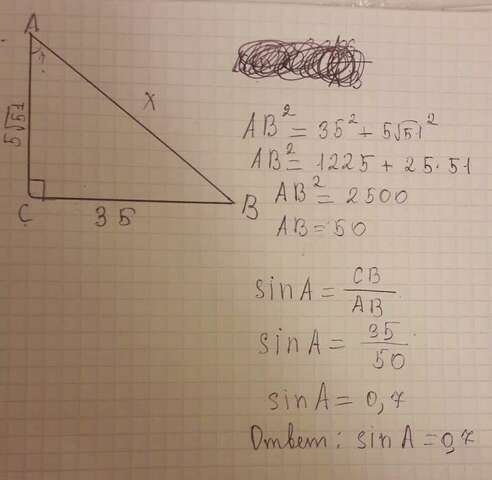 A
?
x
5√51
C
35
B
AB² = 35² + 5√51²
AB² = 1225 + 25·51
AB² = 2500
AB = 50
sin A = CB/AB
sin A = 35/50
sin A = 0,7
Ответ: sin A = 0,7